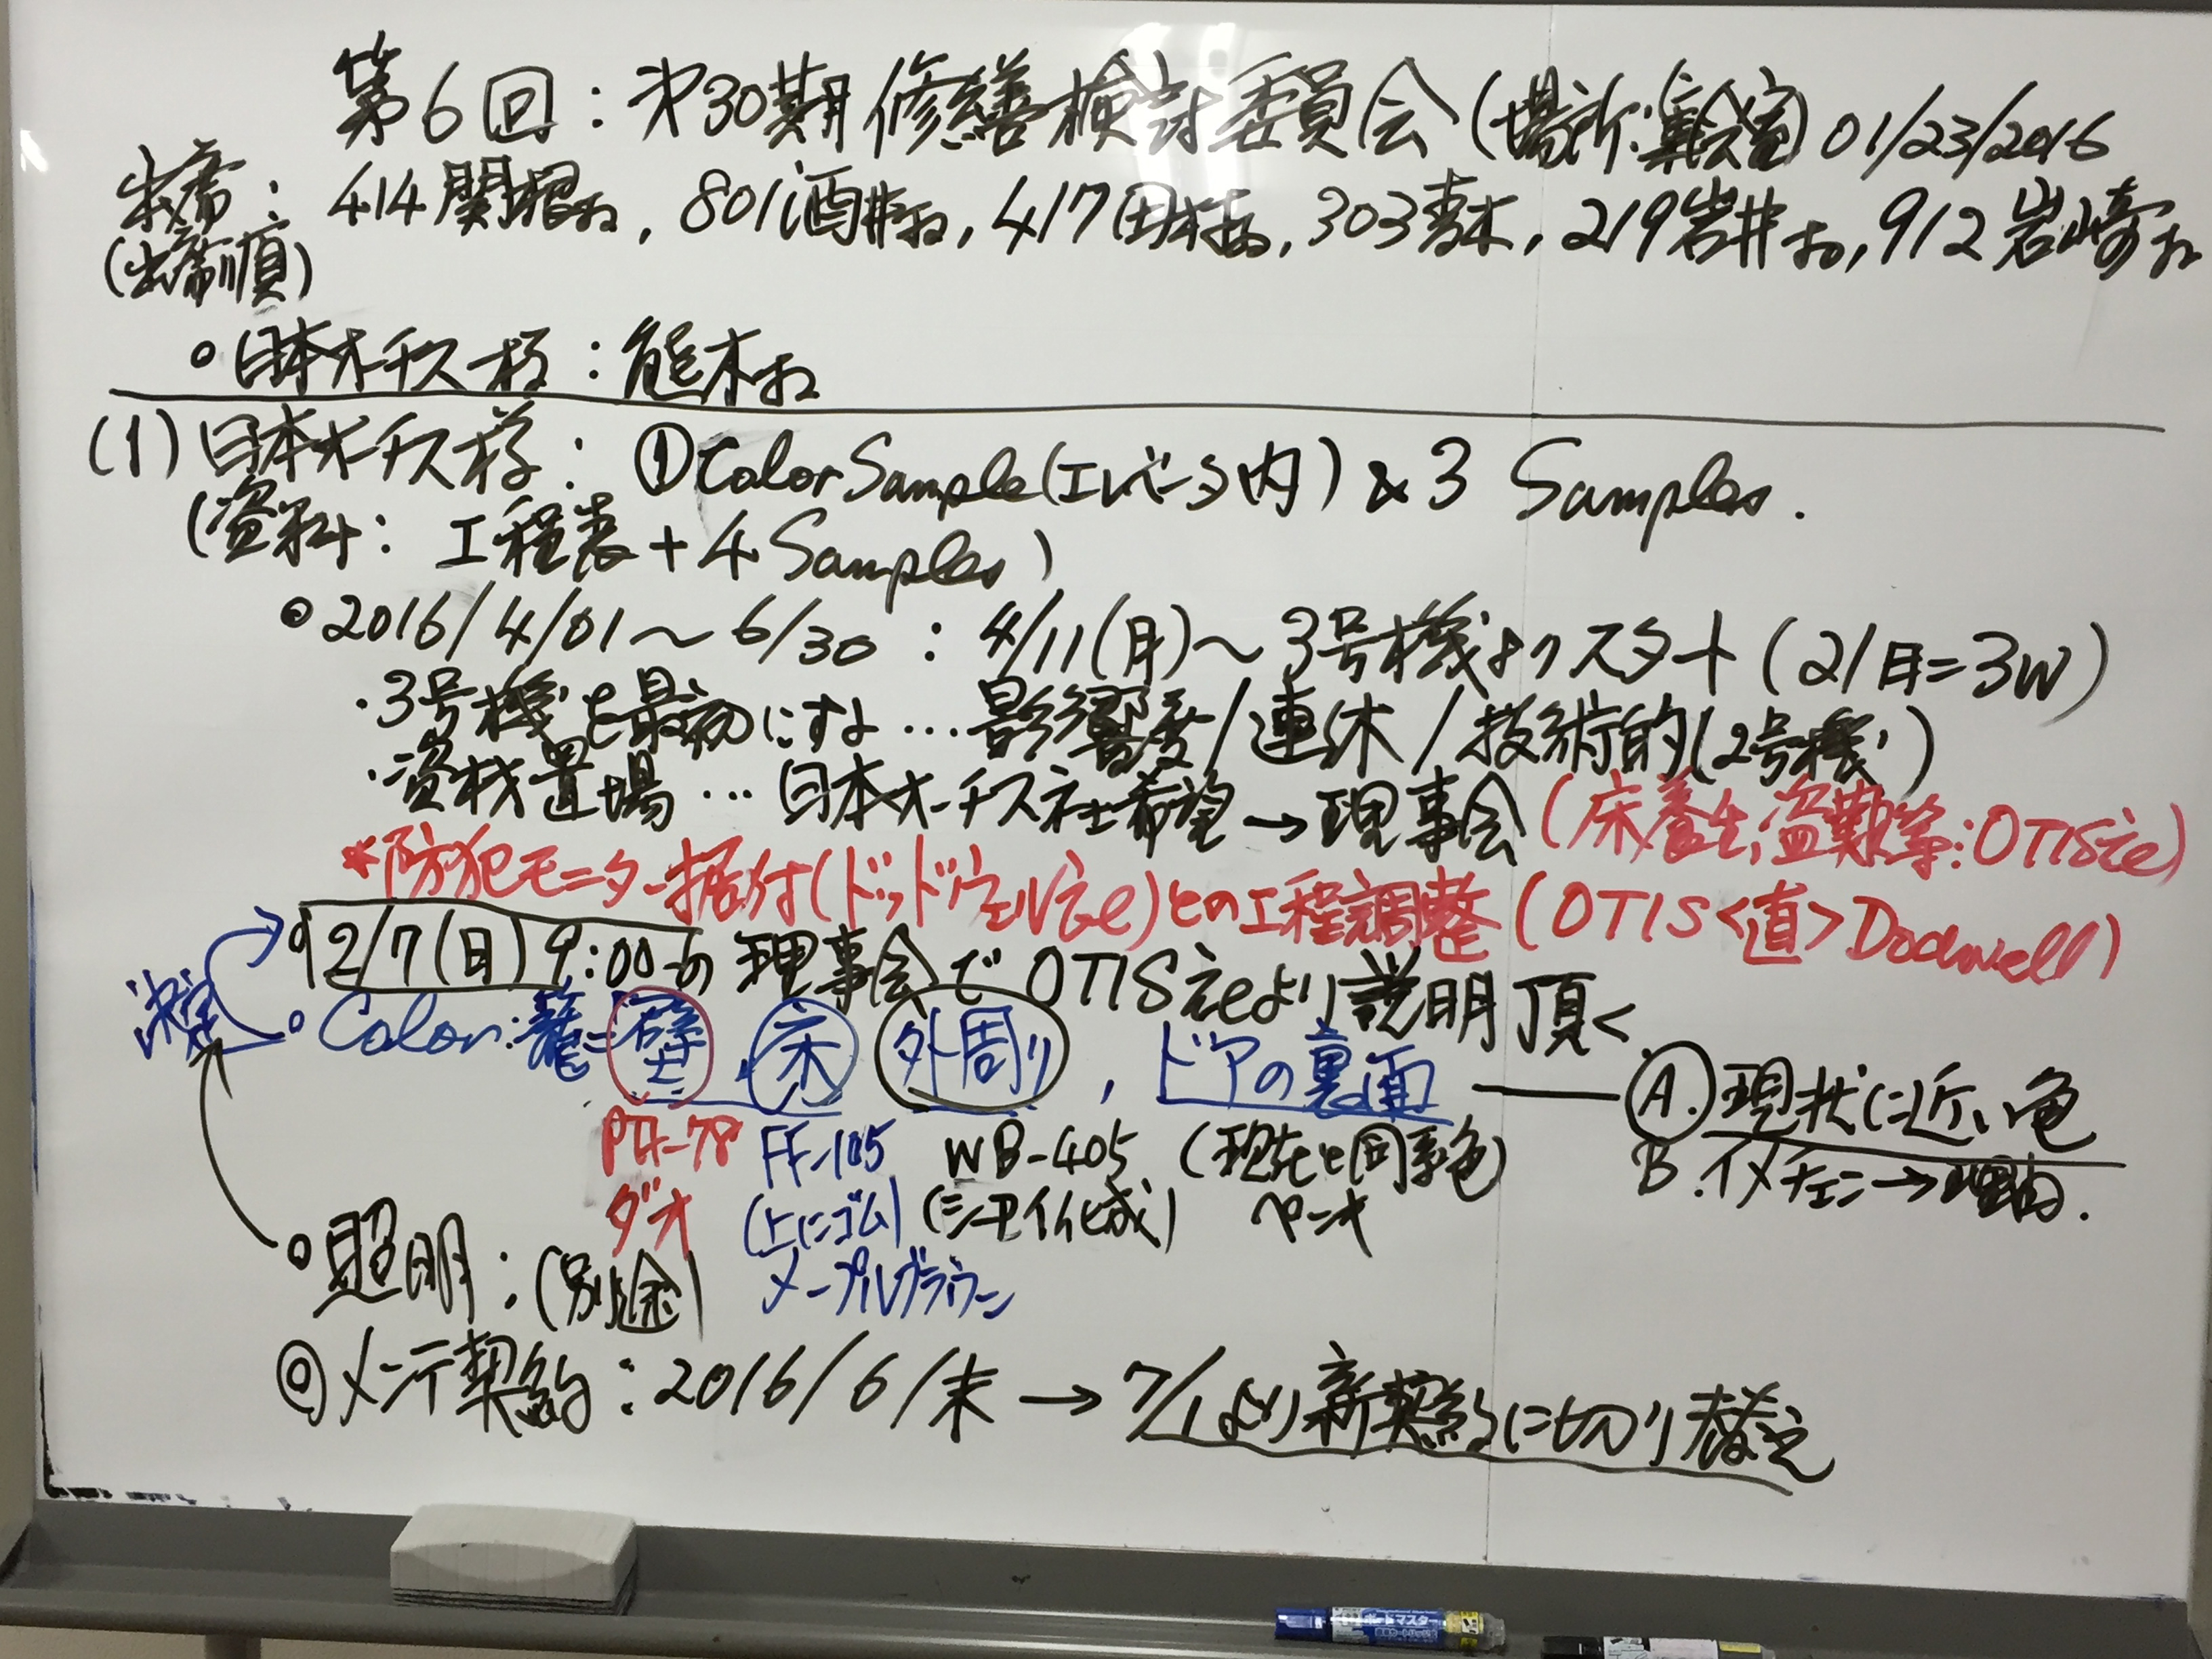 第6回：才30期修繕検討委員会(場所：集会室) 01/23/2016
出席：414関根さん, 801酒井さん, 417田村さん, 303青木, 219岩井さん, 912岩崎さん
(出席順)
○日本オーチス様：熊木さん
(1)日本オーチス様：①Color Sample(エレベータ内) & 3 Samples.
(資料：工程表+4 Samples)
◎2016/4/01～6/30：4/11(月)～3号機よりスタート(21日=3W)
・3号機を最初にする…影響度/連休/技術的(2号機)
・資材置場…日本オーチス社希望→理事会(床養生,盗難等：OTIS社)
*防犯モニター据付(ドッドウェル社)との工程調整(OTIS<直>Dodwell)
○2/7(日)9:00～の理事会でOTIS社より説明頂く
決定
○Color：籠=壁,床 外周り,ドアの裏面 ― A.現状に近い色
B.イメチェン→理由.
PH-78 FF-105 WB-405 (現在と同系色)
ダオ (上にゴム) (シーアイ化成) ペンキ
メープルブラウン
○照明：(別途)
◎メンテ契約：2016/6/末→7/1より新契約に切り替え
ボードマスター